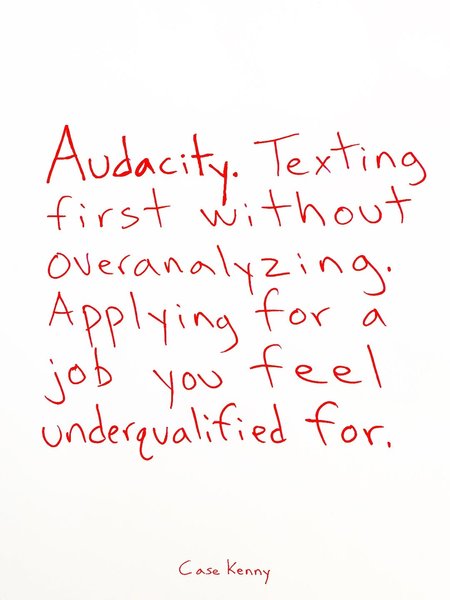 Audacity. Texting
first without
overanalyzing.
Applying for a
job you feel
underqualified for.
Case Kenny